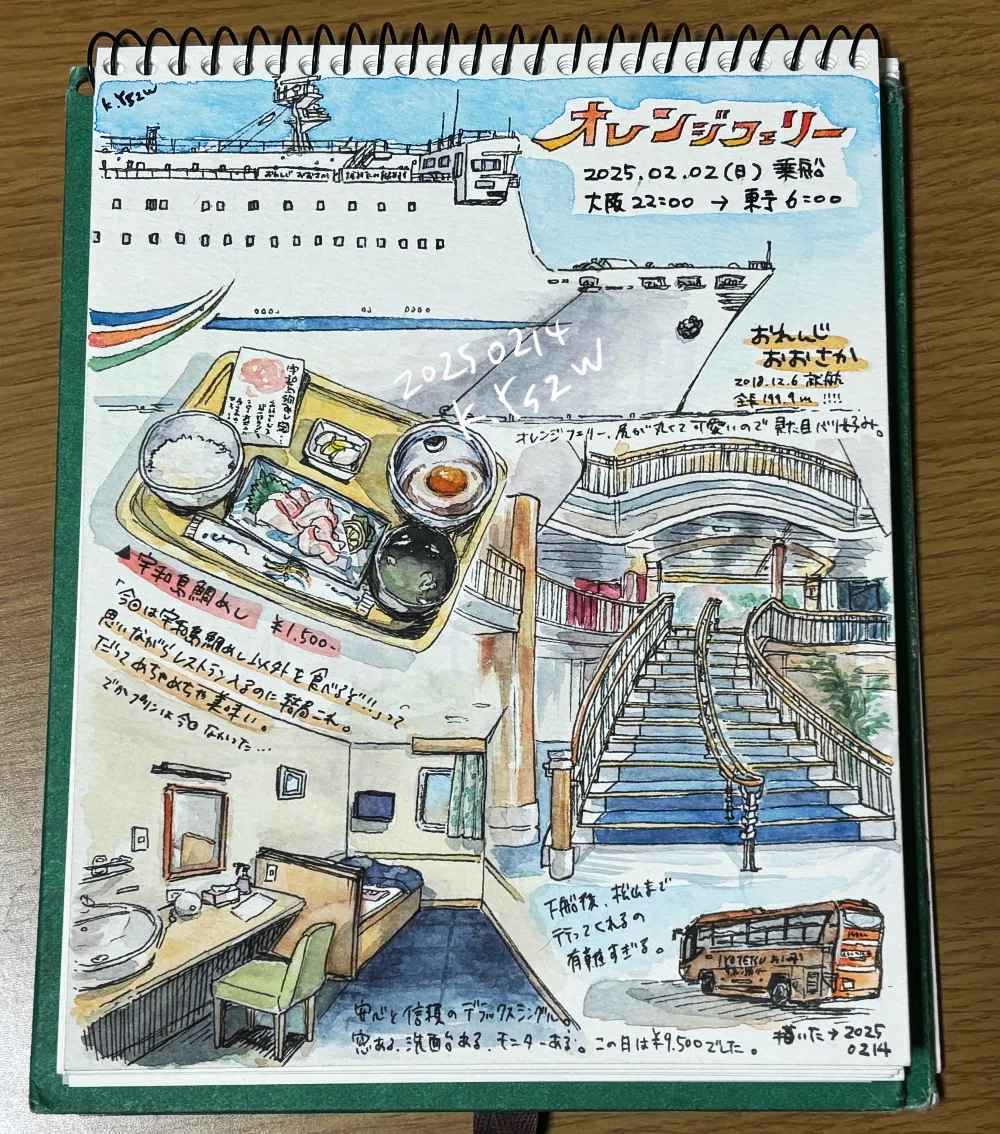 K.Ys2W
オレンジフェリー
2025.02.02(日) 乗船
大阪 22:00 → 東予 6:00
おれんじ おおさか
おれんじ
おおさか
2018.12.6 就航
全長199.9m !!!!
オレンジフェリー、尻が丸くて可愛いので見た目バリ好み。
20250214
K Ys2W
▲宇和島鯛めし ¥1,500-
「今日は宇和島鯛めし以外を食べるぞ…!」って
思いながらレストラン入るのに結局これ。
だってめちゃめちゃ美味い。
でかプリンは今日なかった…
下船後、松山まで
行ってくれるの
有難すぎる。
IYOTETSU
安心と信頼のデラックスシングル。
窓ある、洗面台ある、モニターある。この日は¥9,500でした。
描いた→2025
0214